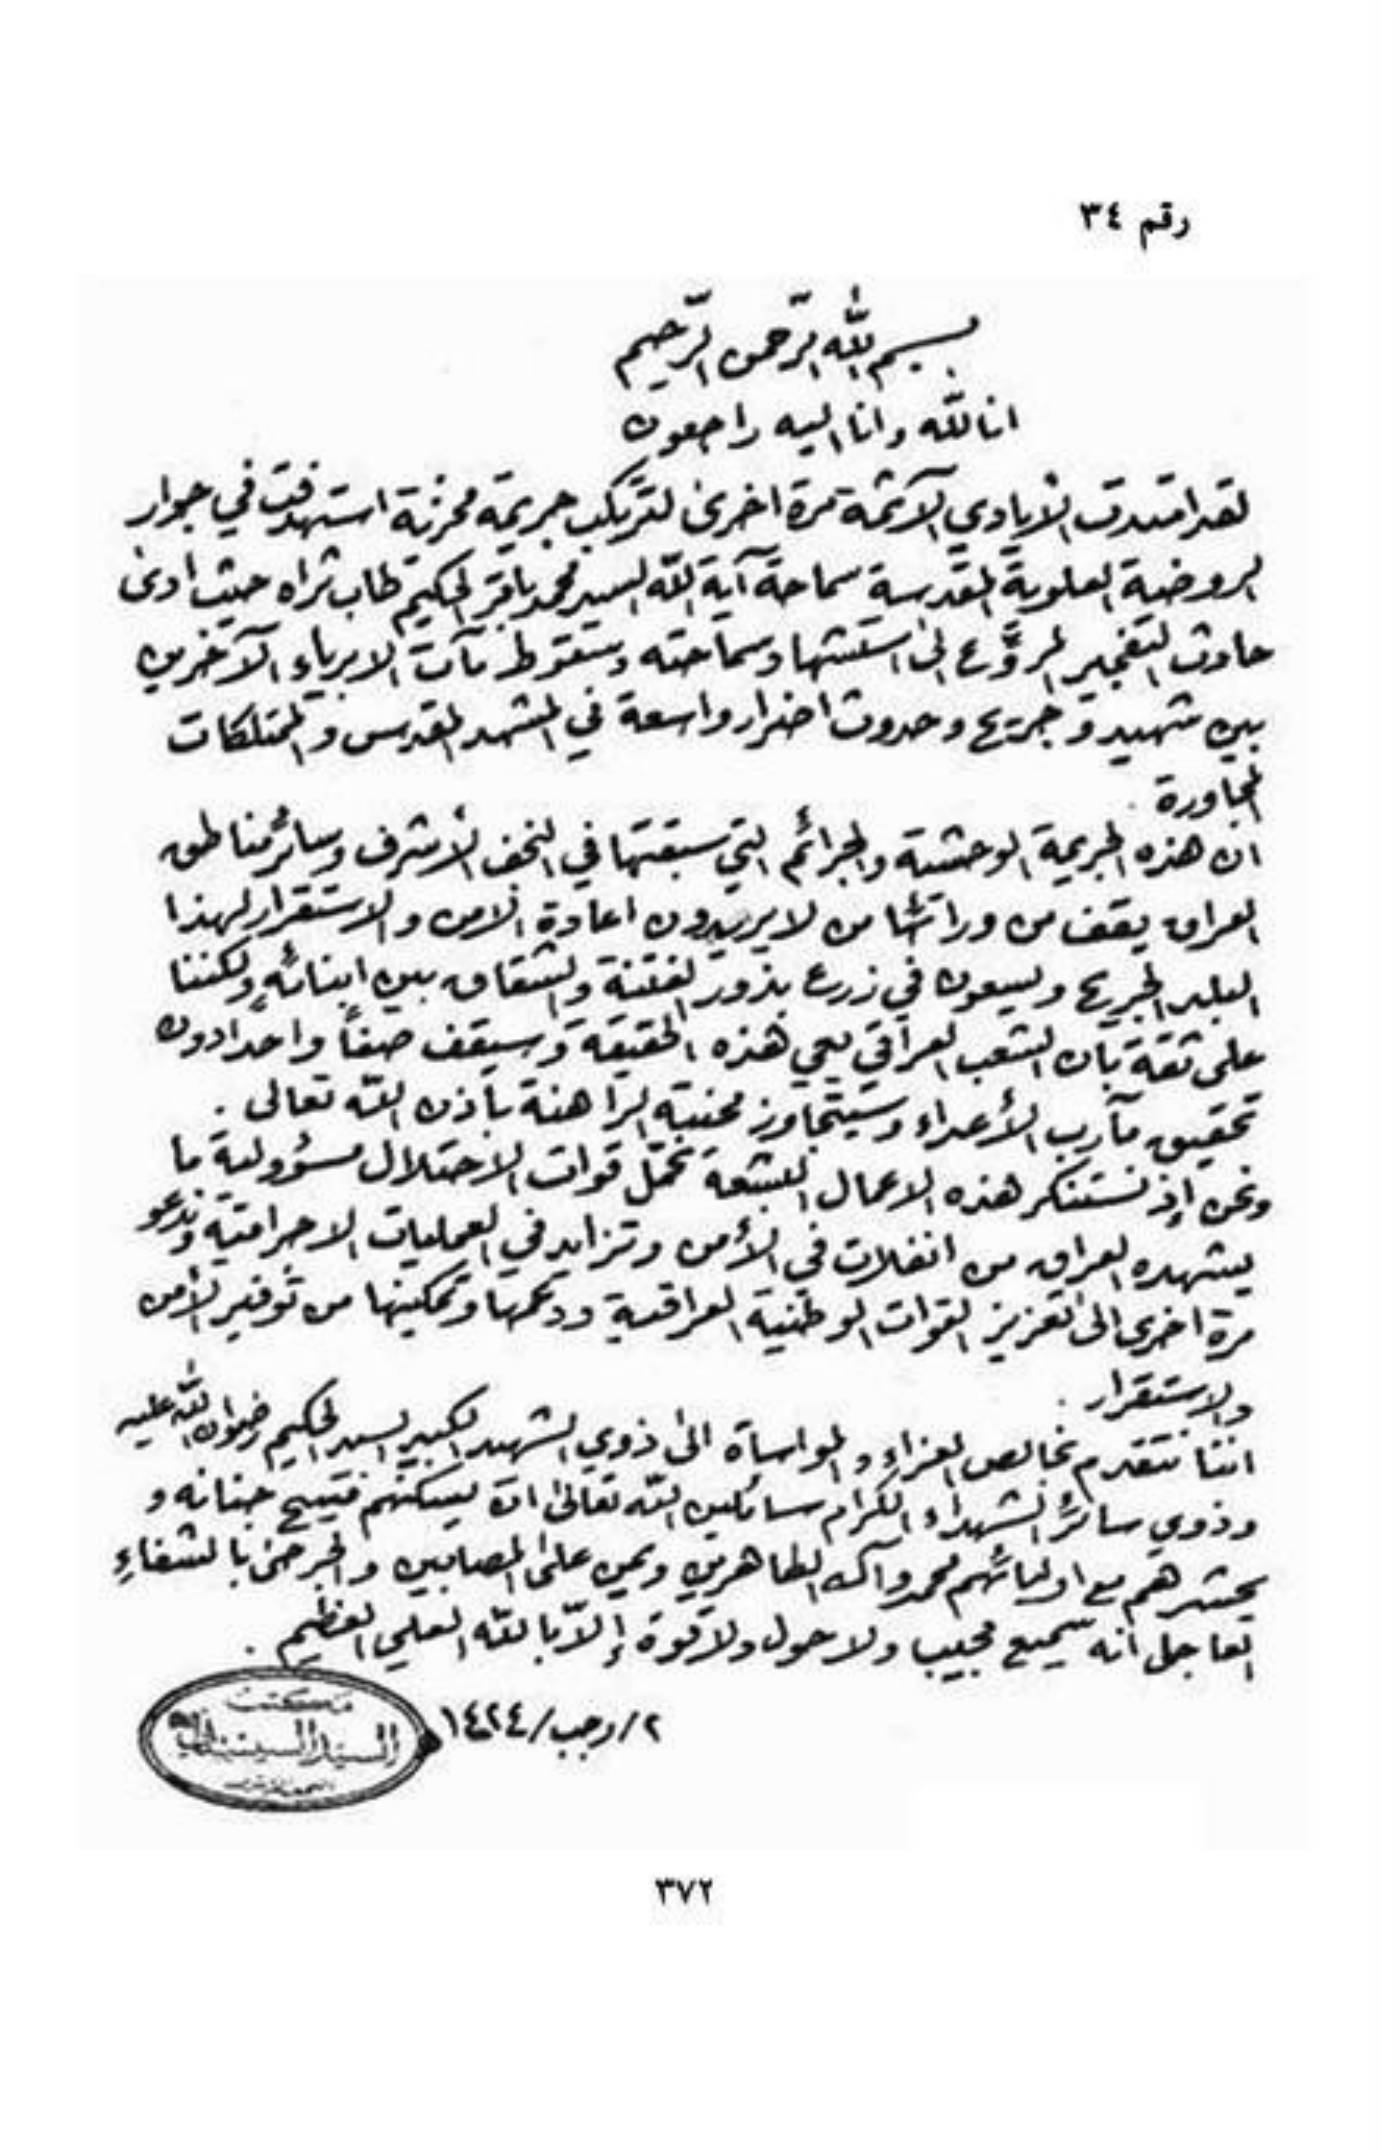 رقم ٣٤
بسم الله الرّحمن الرّحيم
انا لله وانا اليه راجعون
لقد امتدت الأيادي الآثمة مرة اخرى لترتكب جريمة مخزية استهدفت في جوار
الروضة العلوية المقدسة سماحة آية الله السيد محمد باقر الحكيم طاب ثراه حيث ادى
حادث التفجير المروّع الى استشهاد سماحته وسقوط مآت الابرياء الآخرين
بين شهيد وجريح وحدوث اضرار واسعة في المشهد المقدس والممتلكات
المجاورة
ان هذه الجريمة الوحشية والجرائم التي سبقتها في النجف الأشرف وسائر مناطق
العراق يقف من ورائها من لا يريدون اعادة الامن والاستقرار لهذا
البلد الجريح ويسعون في زرع بذور الفتنة والشقاق بين ابنائه ولكننا
على ثقة بان الشعب العراقي يعي هذه الحقيقة وسيقف صفاً واحداً دون
تحقيق مآرب الأعداء وسيتجاوز محنته الراهنة باذن الله تعالى .
ونحن إذ نستنكر هذه الاعمال البشعة نحمّل قوات الاحتلال مسؤولية ما
يشهده العراق من انفلات في الأمن وتزايد في العمليات الاجرامية وندعو
مرة اخرى الى تعزيز القوات الوطنية العراقية ودعمها وتمكينها من توفير الأمن
والاستقرار .
اننا نتقدم بخالص العزاء والمواساة الى ذوي الشهيد الكبير السيد الحكيم رضوان الله عليه
وذوي سائر الشهداء الكرام سائلين الله تعالى ان يسكنهم فسيح جنانه و
يحشرهم مع اوليائهم محمد وآله الطاهرين ويمن على المصابين والجرحى بالشفاء
العاجل انه سميع مجيب ولا حول ولا قوة إلّا بالله العلي العظيم .
٢/رجب/١٤٢٤
مكتب
السيد السيستاني
النجف الاشرف
٣٧٢